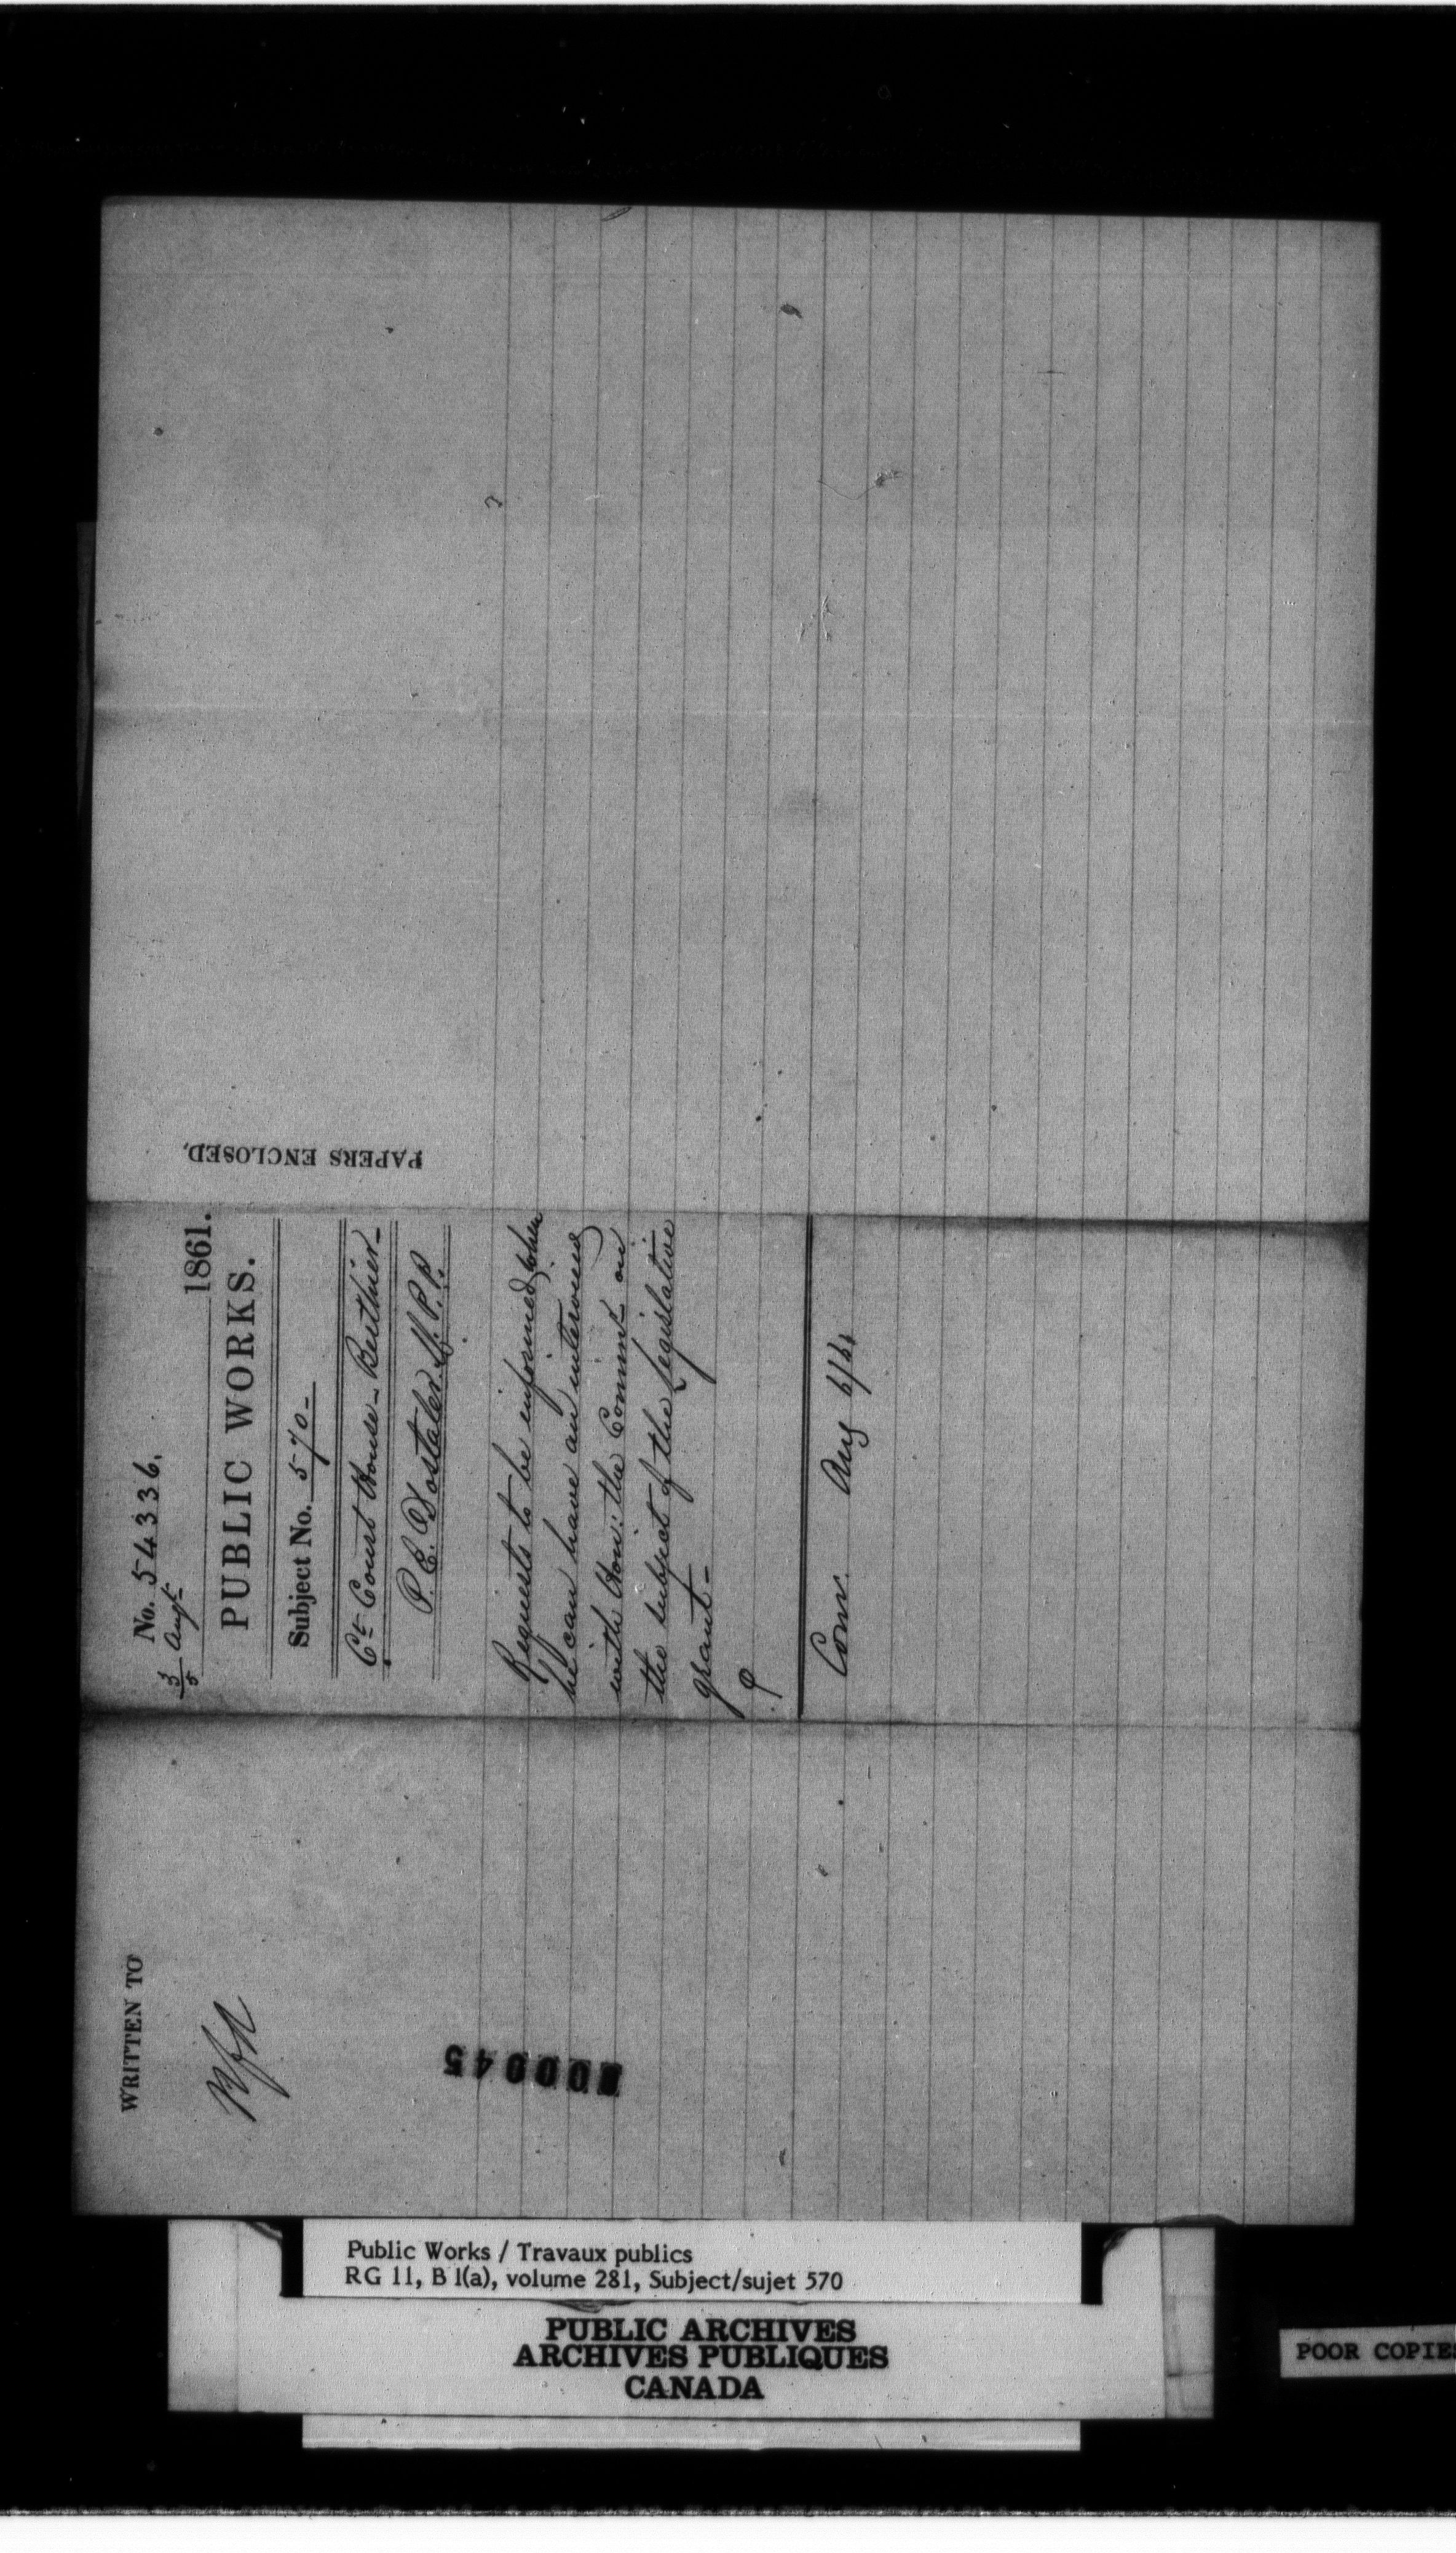 PAPERS ENCLOSED.
No. 54336.
3/5 Augt 1861.
PUBLIC WORKS.
Subject No. 570-
Ct Court House - Berthier-
P. E. Dostaler M.P.P.
Requests to be informed when
he can have an interview
with Hon: the Commr on
the subject of the Legislative
grant-
Com. Aug 6/61
WRITTEN TO
000045
Public Works / Travaux publics
RG 11, B 1(a), volume 281, Subject/sujet 570
PUBLIC ARCHIVES
ARCHIVES PUBLIQUES
CANADA
POOR COPIES